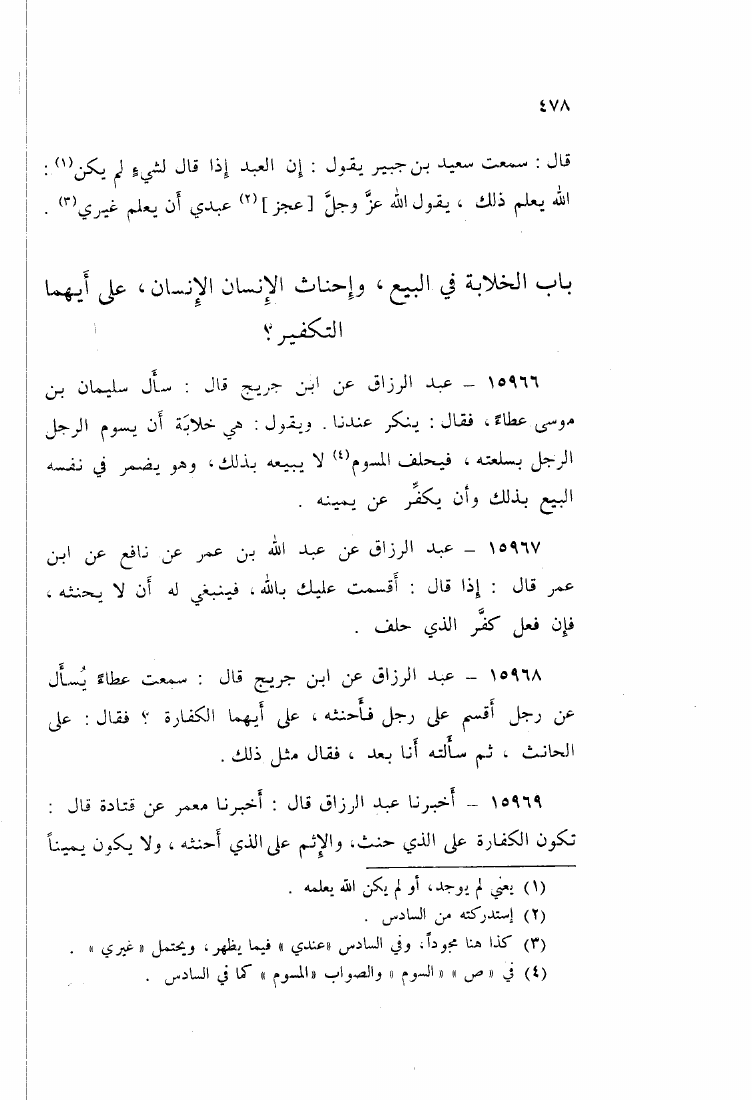 ٤٧٨
قال : سمعت سعيد بن جبير يقول : إن العبد إذا قال لشيءٍ لم يكن(١) :
الله يعلم ذلك ، يقول الله عزَّ وجلَّ [عجز](٢) عبدي أن يعلم غيري(٣) .
باب الخلابة في البيع ، وإحناث الإنسان الإنسان ، على أيهما
التكفير ؟
١٥٩٦٦ – عبد الرزاق عن ابن جريج قال : سأل سليمان بن
موسى عطاءً ، فقال : ينكر عندنا . ويقول : هي خلابَة أن يسوم الرجل
الرجل بسلعته ، فيحلف المسوم(٤) لا يبيعه بذلك ، وهو يضمر في نفسه
البيع بذلك وأن يكفِّر عن يمينه .
١٥٩٦٧ – عبد الرزاق عن عبد الله بن عمر عن نافع عن ابن
عمر قال : إذا قال : أقسمت عليك بالله ، فينبغي له أن لا يحنثه ،
فإن فعل كفَّر الذي حلف .
١٥٩٦٨ – عبد الرزاق عن ابن جريج قال : سمعت عطاءً يُسأل
عن رجل أقسم على رجل فأحنثه ، على أيهما الكفارة ؟ فقال : على
الحانث ، ثم سألته أنا بعد ، فقال مثل ذلك .
١٥٩٦٩ – أخبرنا عبد الرزاق قال : أخبرنا معمر عن قتادة قال :
تكون الكفارة على الذي حنث ، والإثم على الذي أحنثه ، ولا يكون يميناً
(١) يعني لم يوجد ، أو لم يكن الله يعلمه .
(٢) إستدركته من السادس .
(٣) كذا هنا مجوداً ، وفي السادس «عندي» فيما يظهر ، ويحتمل «غيري» .
(٤) في «ص» «السوم» والصواب «المسوم» كما في السادس .